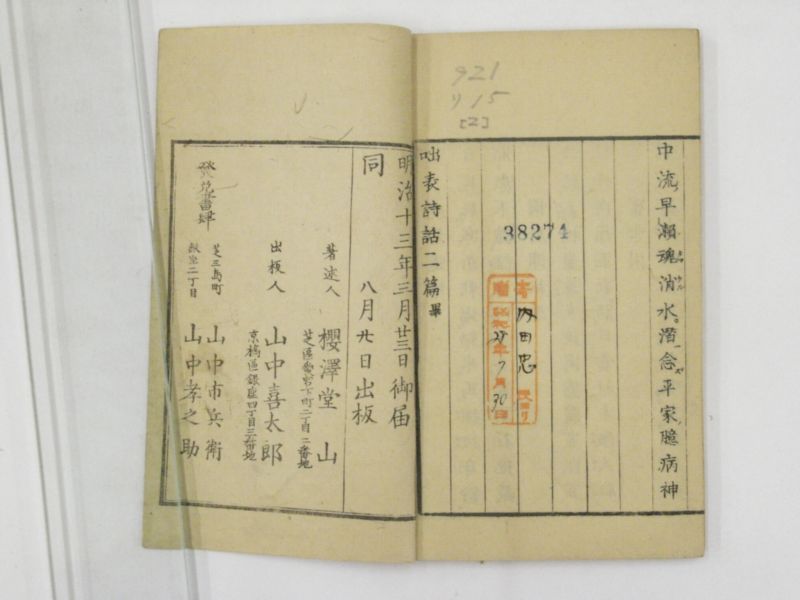 921
リ15
[2]
中流早瀨魂消水潛念平家臆病神
38274
寄贈
內田忠氏ヨリ
昭和29年7月30日
咄表詩話二篇畢
明治十三年三月廿三日御届
同 八月廿日出板
著述人 櫻澤堂山
芝區愛宕下町二丁目二番地
出板人 山中喜太郎
京橋區銀座四丁目三番地
發兌書肆
芝三島町 山中市兵衛
銀座二丁目 山中孝之助